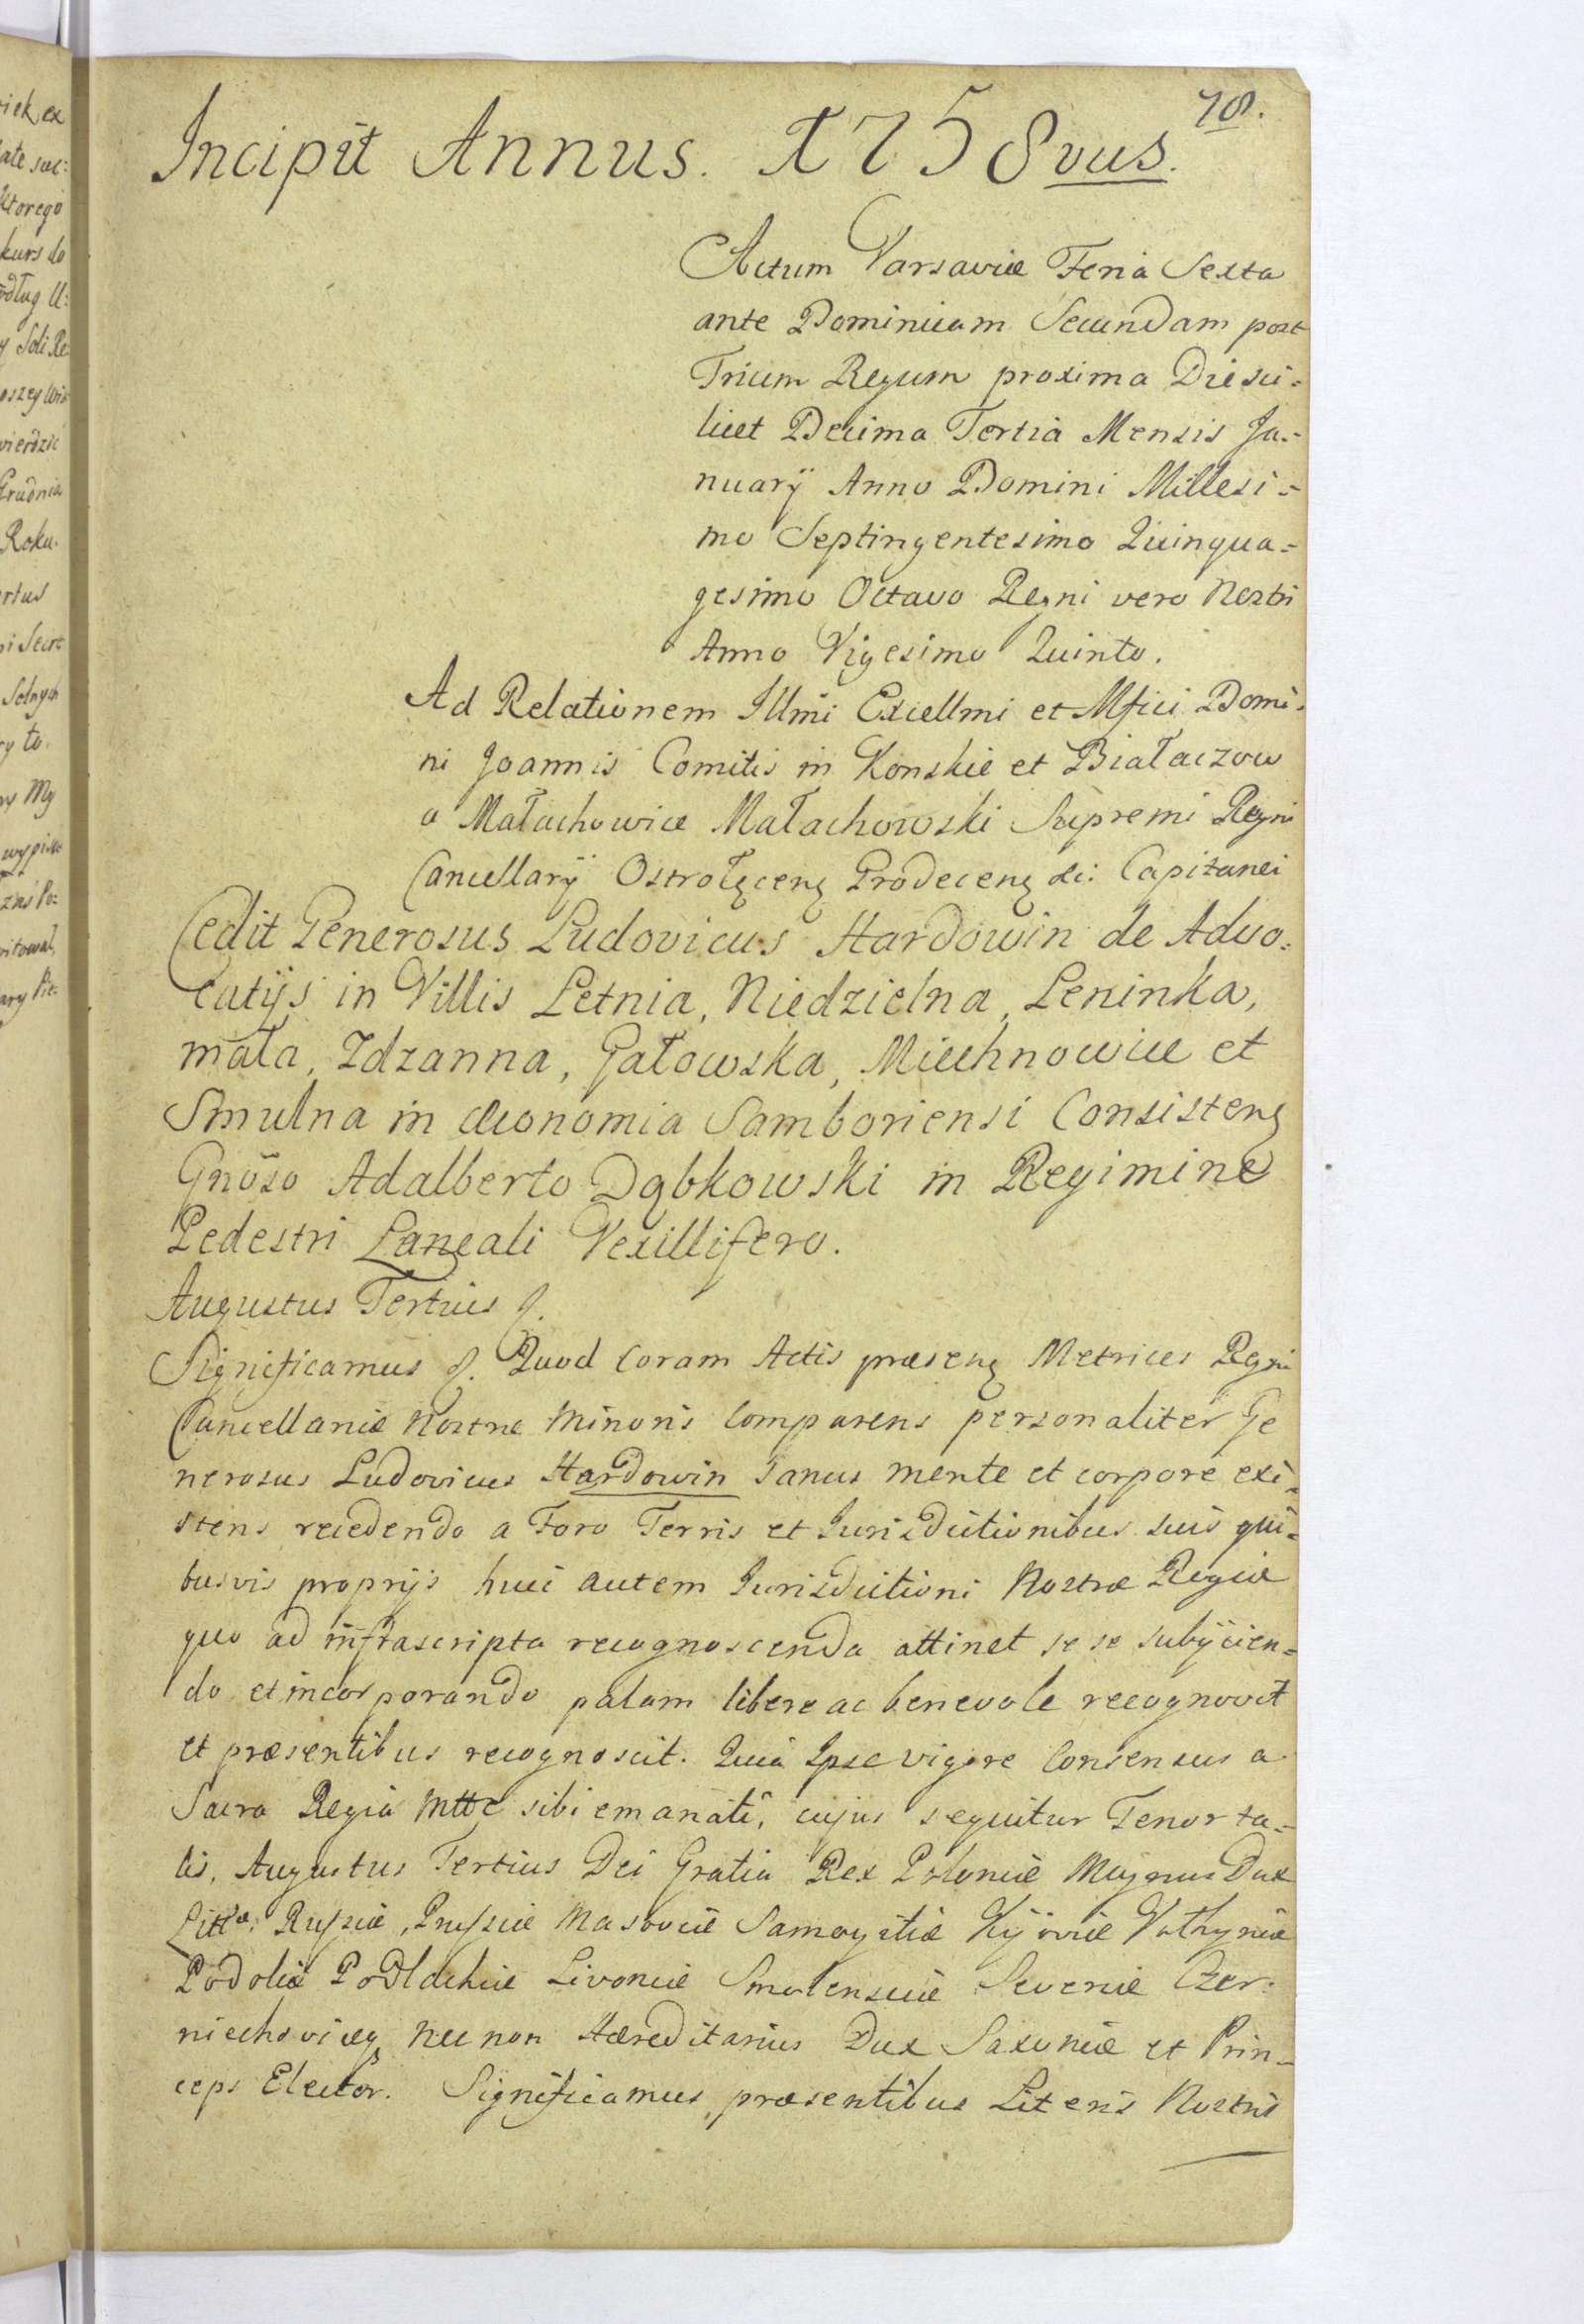 78.
Incipit Annus. 1758vus.
Actum Varsaviæ Feria Sexta
ante Dominicam Secundam post
Trium Regum proxima Die sci=
licet Decima Tertia Mensis Ja=
nuarÿ Anno Domini Millesi=
mo Septingentesimo Quinqua=
gesimo Octavo Regni vero Nostri
Anno Vigesimo Quinto.
Ad Relationem Illmi Excellmi et Mfici Domi=
ni Joannis Comitis in Konskie et Białaczow
a Małachowice Małachowski Supremi Regni
Cancellarÿ Ostrołęceng Grodeceng &c: Capitanei
Cedit Generosus Ludovicus Hardowin de Advo=
catijs in Villis Letnia, Niedzielna, Leninka,
mała, Idzanna, Gałowska, Miechnowice et
Smulna in Œconomia Samboriensi Consisteng
Gnoso Adalberto Dąbkowski in Regimine
Pedestri Laneali Vexillifero.
Augustus Tertius &.
Significamus &. Quod Coram Actis præseng Metrices Regni
Cancellariæ Nostræ Minoris Comparens personaliter Ge
nerosus Ludovicus Hardowin sanus mente et corpore exi=
stens recedendo a Foro Terris et Jurisdictionibus suis qui=
busvis proprijs huic autem Jurisdictioni Nostræ Regiæ
quo ad infrascripta recognoscenda attinet se se subÿcien=
do et incorporando palam libere ac benevole recognovit
et præsentibus recognoscit. Quia Ipse vigore Consensus a
Sacra Regia Mtte sibi emanati, cujus sequitur Tenor ta=
lis, Augustus Tertius Dei Gratia Rex Poloniæ Magnus Dux
Litt, Russiæ, Prussiæ Masoviæ Samogitiæ Kÿoviæ Volhyniæ
Podoliæ Podlachiæ Livoniæ Smolensciæ Severiæ Czer=
niechoviæq nec non Hæreditarius Dux Saxoniæ et Prin=
ceps Elector. Significamus præsentibus Literis Nostris